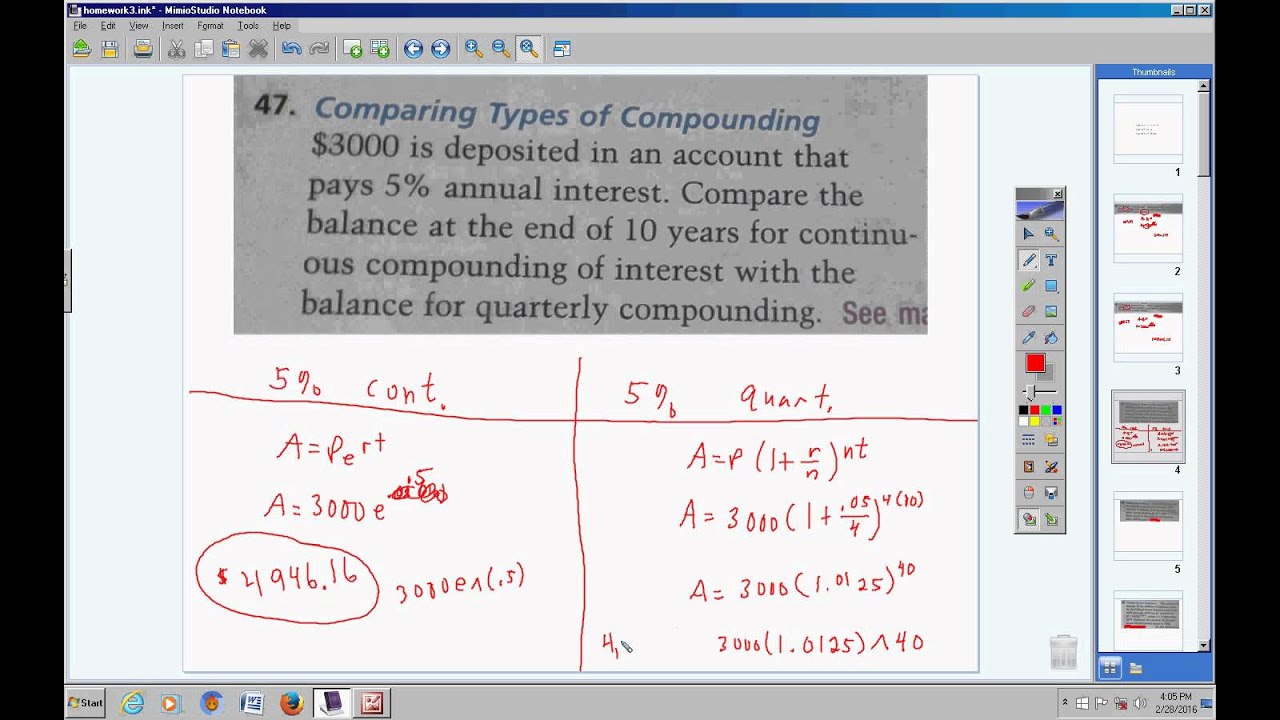 homework3.ink* - MimioStudio Notebook
File Edit View Insert Format Tools Help
Thumbnails
47. Comparing Types of Compounding
$3000 is deposited in an account that
pays 5% annual interest. Compare the
balance at the end of 10 years for continu-
ous compounding of interest with the
balance for quarterly compounding. See ma
5% cont.
A=Pe^rt
A=3000e^.5
$4946.16
3000e^(.5)
5% quart.
A=P(1+r/n)^nt
A=3000(1+.05/4)^4(10)
A=3000(1.0125)^40
3000(1.0125)^40
4,
1
2
3
4
5
Start
4:05 PM
2/28/2016